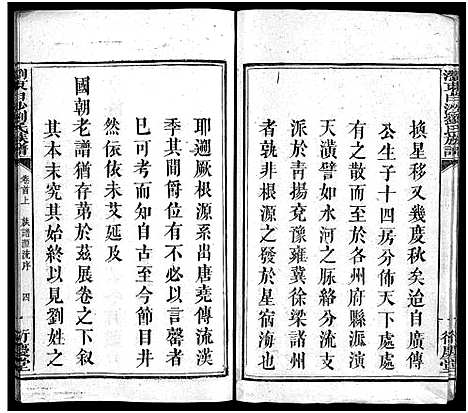 瀏東白沙劉氏族譜
換星移又幾度秋矣迨自廣傳
公生子十四房分佈天下處處
有之散而至於各州府縣派演
天潢譬如水河之脈絡長江分
流於青揚兗豫雍冀徐梁諸州
其間發源根本則皆如星宿海也
耶邇厥根源系出唐堯傳流漢
季其間爵位何可以言罄者
巳可考而知自古至今節目井
然依依未艾延及
國朝老譜猶存第於茲展卷之下敘
其本末究其始終以見劉姓之
瀏東白沙劉氏族譜
卷首上
族譜源流序
四